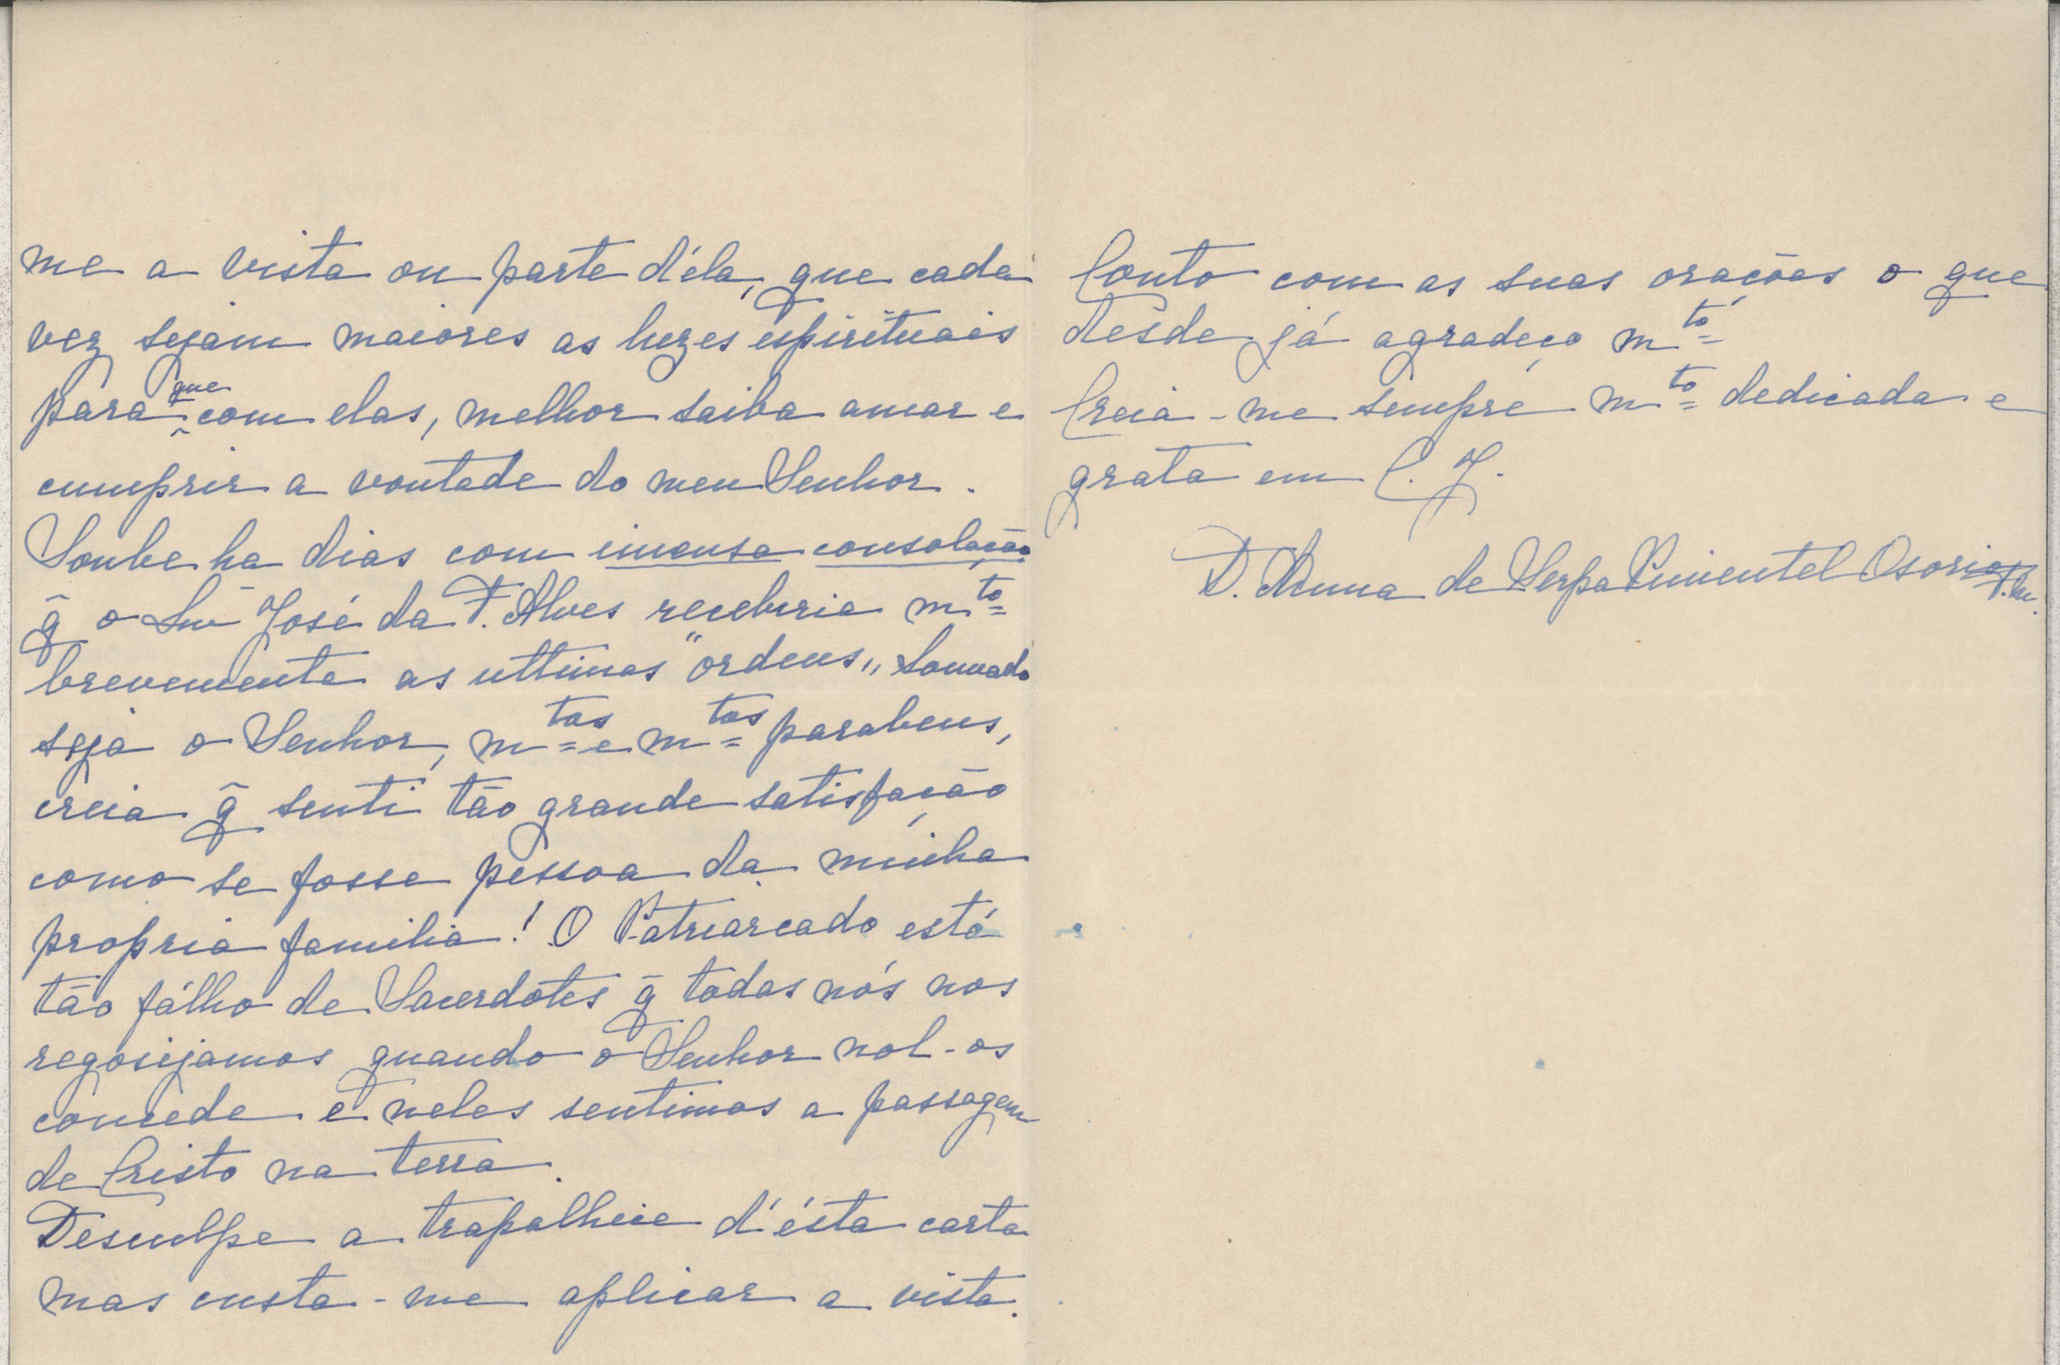 me a vista ou parte d'éla, que cada
vez sejam maiores as luzes espirituais
para que com elas, melhor saiba amar e
cumprir a vontade do meu Senhor.
Soube ha dias com imensa consolação
q̃ o Snr José da F. Alves receberia mto
brevemente as ultimas "ordens„ Louvado
seja o Senhor, mtos e mtos parabens,
creia q̃ senti tão grande satisfação
como se fosse pessoa da minha
propria familia! O Patriarcado está
tão fálho de Sacerdotes q̃ todas nós nos
regosijamos quando o Senhor nol-os
concede e neles sentimos a passagem
de Cristo na terra.
Desculpe a trapalhice d'ésta carta
mas custa-me aplicar a vista.
Conto com as suas orações o que
desde já agradeço mto
Creia-me sempre mto dedicada e
grata em C. J.
D. Anna de Serpa Pimentel Osorio